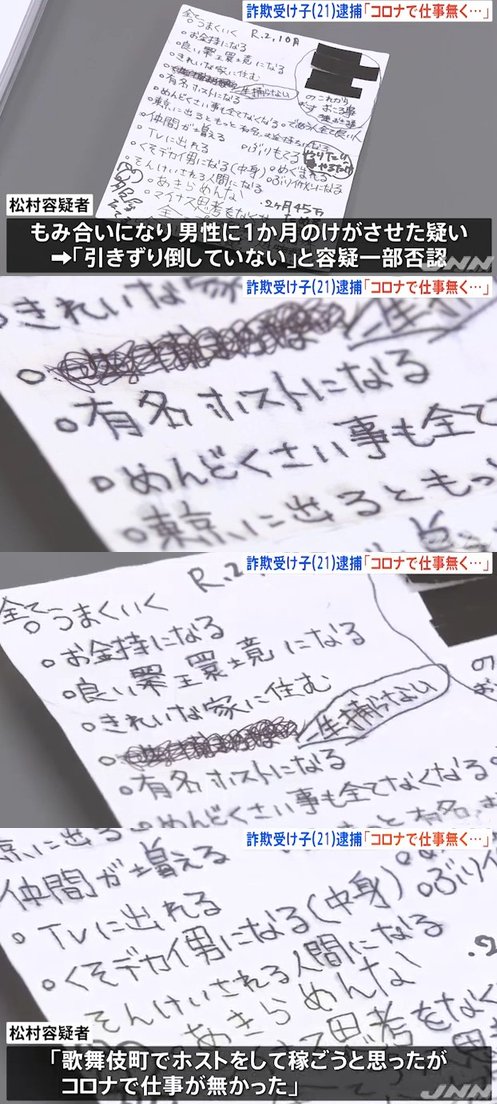 詐欺受け子(21)逮捕「コロナで仕事無く…」
全て
うまくいく
R.2.10月
・お金持になる
・良い環境になる
・きれいな家に住む
一生捕らない
・有名ホストになる
・めんどくさい事も全てなくなる
・東京に出るともっと有名
・仲間が増える
・TVに出れる
・くそデカイ男になる(中身)
・そんけいされる人間になる
・あきらめんな
・マイナス思考をなく
のこれから
松村容疑者
もみ合いになり 男性に1か月のけがさせた疑い
➡「引きずり倒していない」と容疑一部否認
JNN
詐欺受け子(21)逮捕「コロナで仕事無く…」
きれいな家
一生
・有名ホストになる
・めんどくさい事も全て
・東京に出るともっ
詐欺受け子(21)逮捕「コロナで仕事無く…」
R.2.
全て
うまくいく
・お金持になる
・良い環境になる
・きれいな家に住む
一生捕らない
・有名ホストになる
・めんどくさい事も全てなくなる
詐欺受け子(21)逮捕「コロナで仕事無く…」
京に出る
仲間が増える
・TVに出れる
・くそデカイ男になる(中身)
そんけいされる人間になる
あきらめんな
思考をなく
松村容疑者
「歌舞伎町でホストをして稼ごうと思ったが
コロナで仕事が無かった」
JNN